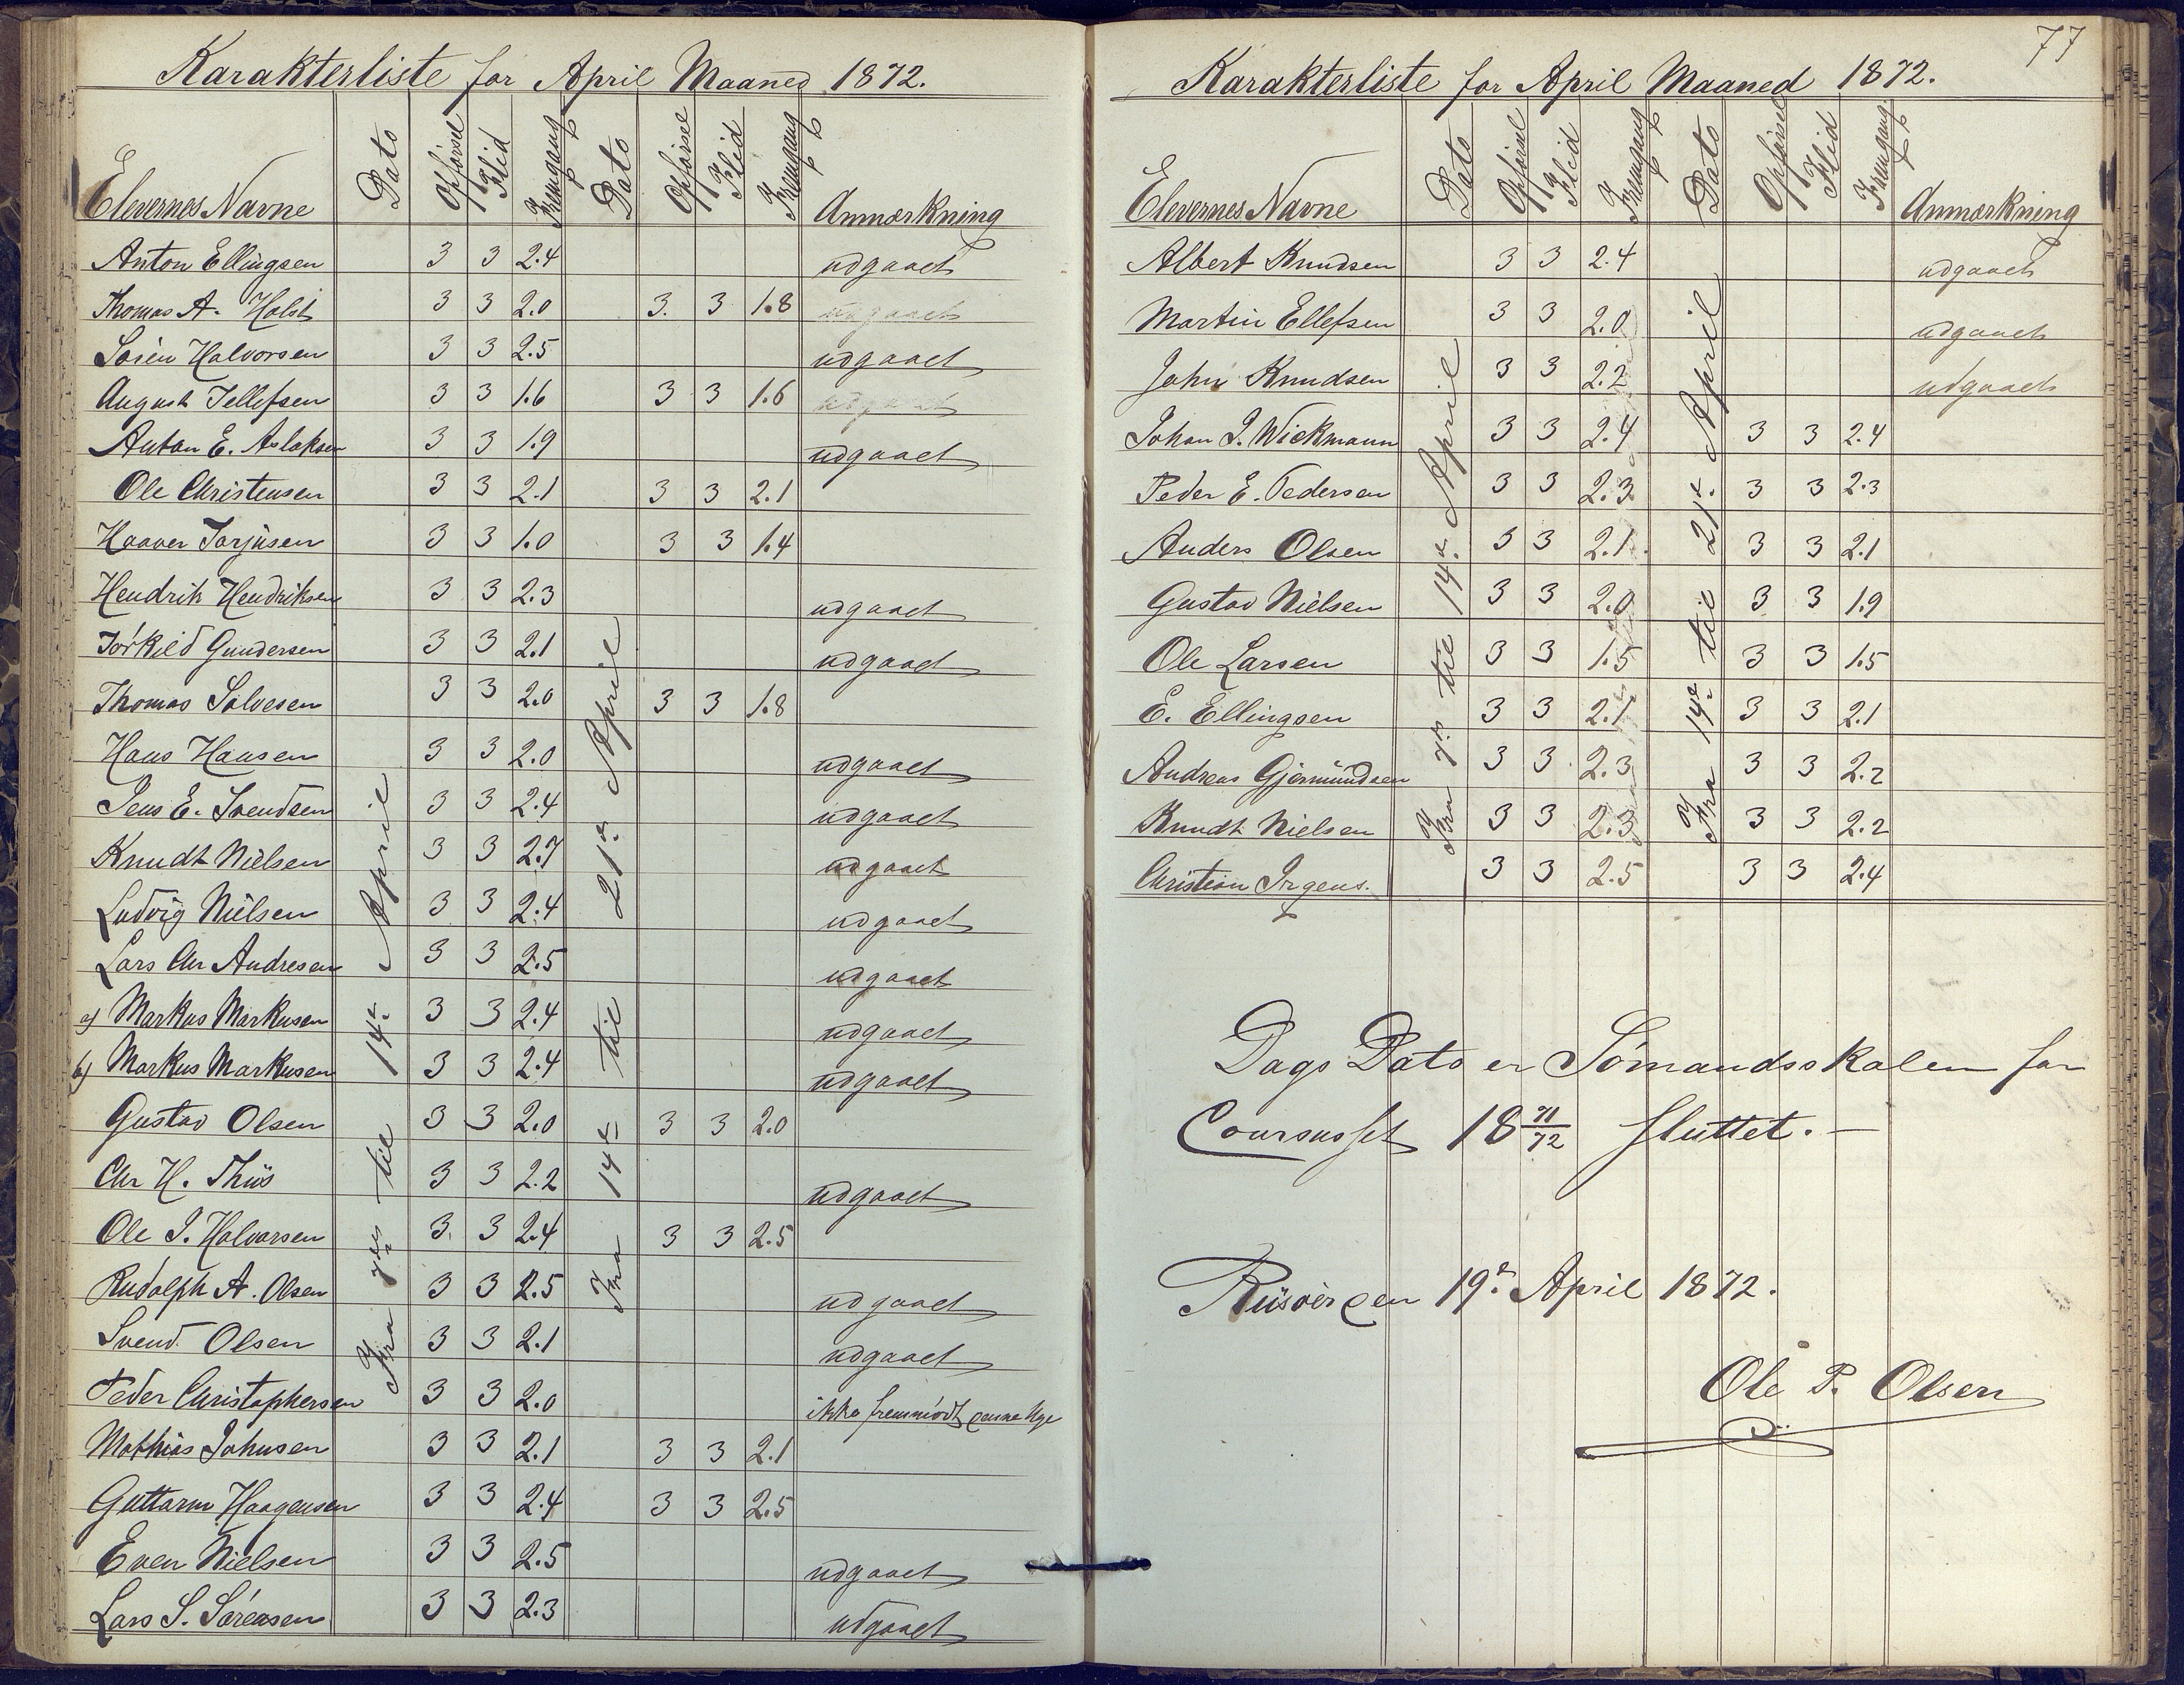 Karakterliste for April Maaned 1872.
Elevernes Navne Dato Opførsel Flid Fremgang Dato Opførsel Flid Fremgang Anmærkning
Fra 7de til 14de April
Fra 14de til 21de April
Anton Ellingsen 3 3 2.4 udgaaet
Thomas A. Holst 3 3 2.0 3. 3 1.8 udgaaet
Sören Halvorsen 3 3 2.5 udgaaet
August Tellefsen 3 3 1.6 3 3 1.6 udgaaet
Anton E. Aslaksen 3 3 1.9 udgaaet
Ole Christensen 3 3 2.1 3 3 2.1
Haaver Torjusen 3 3 1.0 3 3 1.4
Hendrik Hendriksen 3 3 2.3 udgaaet
Torkild Gundersen 3 3 2.1 udgaaet
Thomas Solvesen 3 3 2.0 3 3 1.8
Hans Hansen 3 3 2.0 udgaaet
Jens E. Svendsen 3 3 2.4 udgaaet
Knudt Nielsen 3 3 2.7 udgaaet
Ludvig Nielsen 3 3 2.4 udgaaet
Lars Chr Andresen 3 3 2.5 udgaaet
a) Markus Markusen 3 3 2.4 udgaaet
b) Markus Markusen 3 3 2.4 udgaaet
Gustav Olsen 3 3 2.0 3 3 2.0
Chr H. Thiis 3 3 2.2 udgaaet
Ole J. Halvorsen 3 3 2.4 3 3 2.5
Rudolph A. Olsen 3 3 2.5 udgaaet
Svend Olsen 3 3 2.1 udgaaet
Peder Christophersen 3 3 2.0 ikke fremmödt denne Uge
Mathias Johnsen 3 3 2.1 3 3 2.1
Guttorm Haagensen 3 3 2.4 3 3 2.5
Even Nielsen 3 3 2.5 udgaaet
Lars S. Sörensen 3 3 2.3 udgaaet
77
Karakterliste for April Maaned 1872.
Elevernes Navne Dato Opførsel Flid Fremgang Dato Opførsel Flid Fremgang Anmærkning
Fra 7de til 14de April
Fra 14de til 21de April
Albert Knudsen 3 3 2.4 udgaaet
Martin Ellefsen 3 3 2.0 udgaaet
John Knudsen 3 3 2.2 udgaaet
Johan J. Wickmann 3 3 2.4 3 3 2.4
Peder E. Pedersen 3 3 2.3 3 3 2.3
Anders Olsen 3 3 2.1 3 3 2.1
Gustav Nielsen 3 3 2.0 3 3 1.9
Ole Larsen 3 3 1.5 3 3 1.5
E. Ellingsen 3 3 2.1 3 3 2.1
Andreas Gjermundsen 3 3 2.3 3 3 2.2
Knudt Nielsen 3 3 2.3 3 3 2.2
Christian Irgens. 3 3 2.5 3 3 2.4
Dags Dato er Sömandsskolen for
Coursuset 18 71/72 sluttet. —
Riisöer den 19de April 1872.
Ole P. Olsen